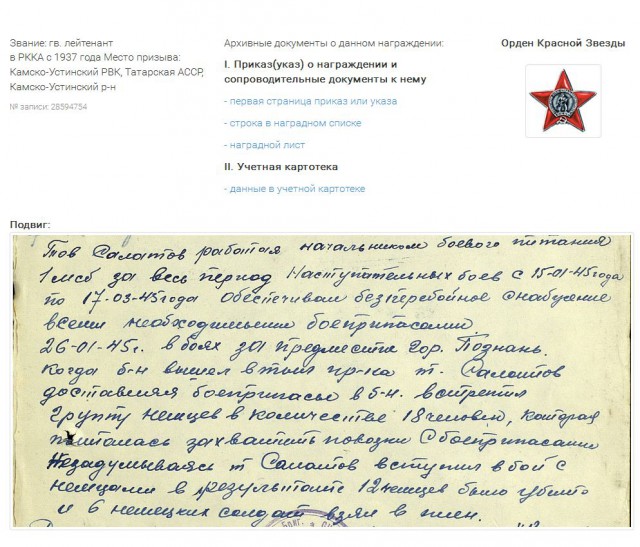 Звание: гв. лейтенант
в РККА с 1937 года Место призыва:
Камско-Устинский РВК, Татарская АССР,
Камско-Устинский р-н
№ записи: 28594754
Архивные документы о данном награждении:
I. Приказ(указ) о награждении и
сопроводительные документы к нему
- первая страница приказ или указа
- строка в наградном списке
- наградной лист
II. Учетная картотека
- данные в учетной картотеке
Орден Красной Звезды
Подвиг:
Тов Салатов работая начальником боевого питания
1 мсб за весь период Наступательных боев с 15-01-45года
по 17-03-45года Обеспечивал безперебойное снабжение
всеми необходимыми боеприпасами
26-01-45г. в боях за предместие гор. Познань.
Когда б-н вышел в тыл пр-ка т. Салатов
доставляя боеприпасы в б-н. встретил
Группу немцев в количестве 18 человек, которая
пыталась захватить повозки с боеприпасами
Незадумываясь т Салатов вступил в бой с
немцами в результате 12 немцев было убито
и 6 немецких солдат взял в плен.